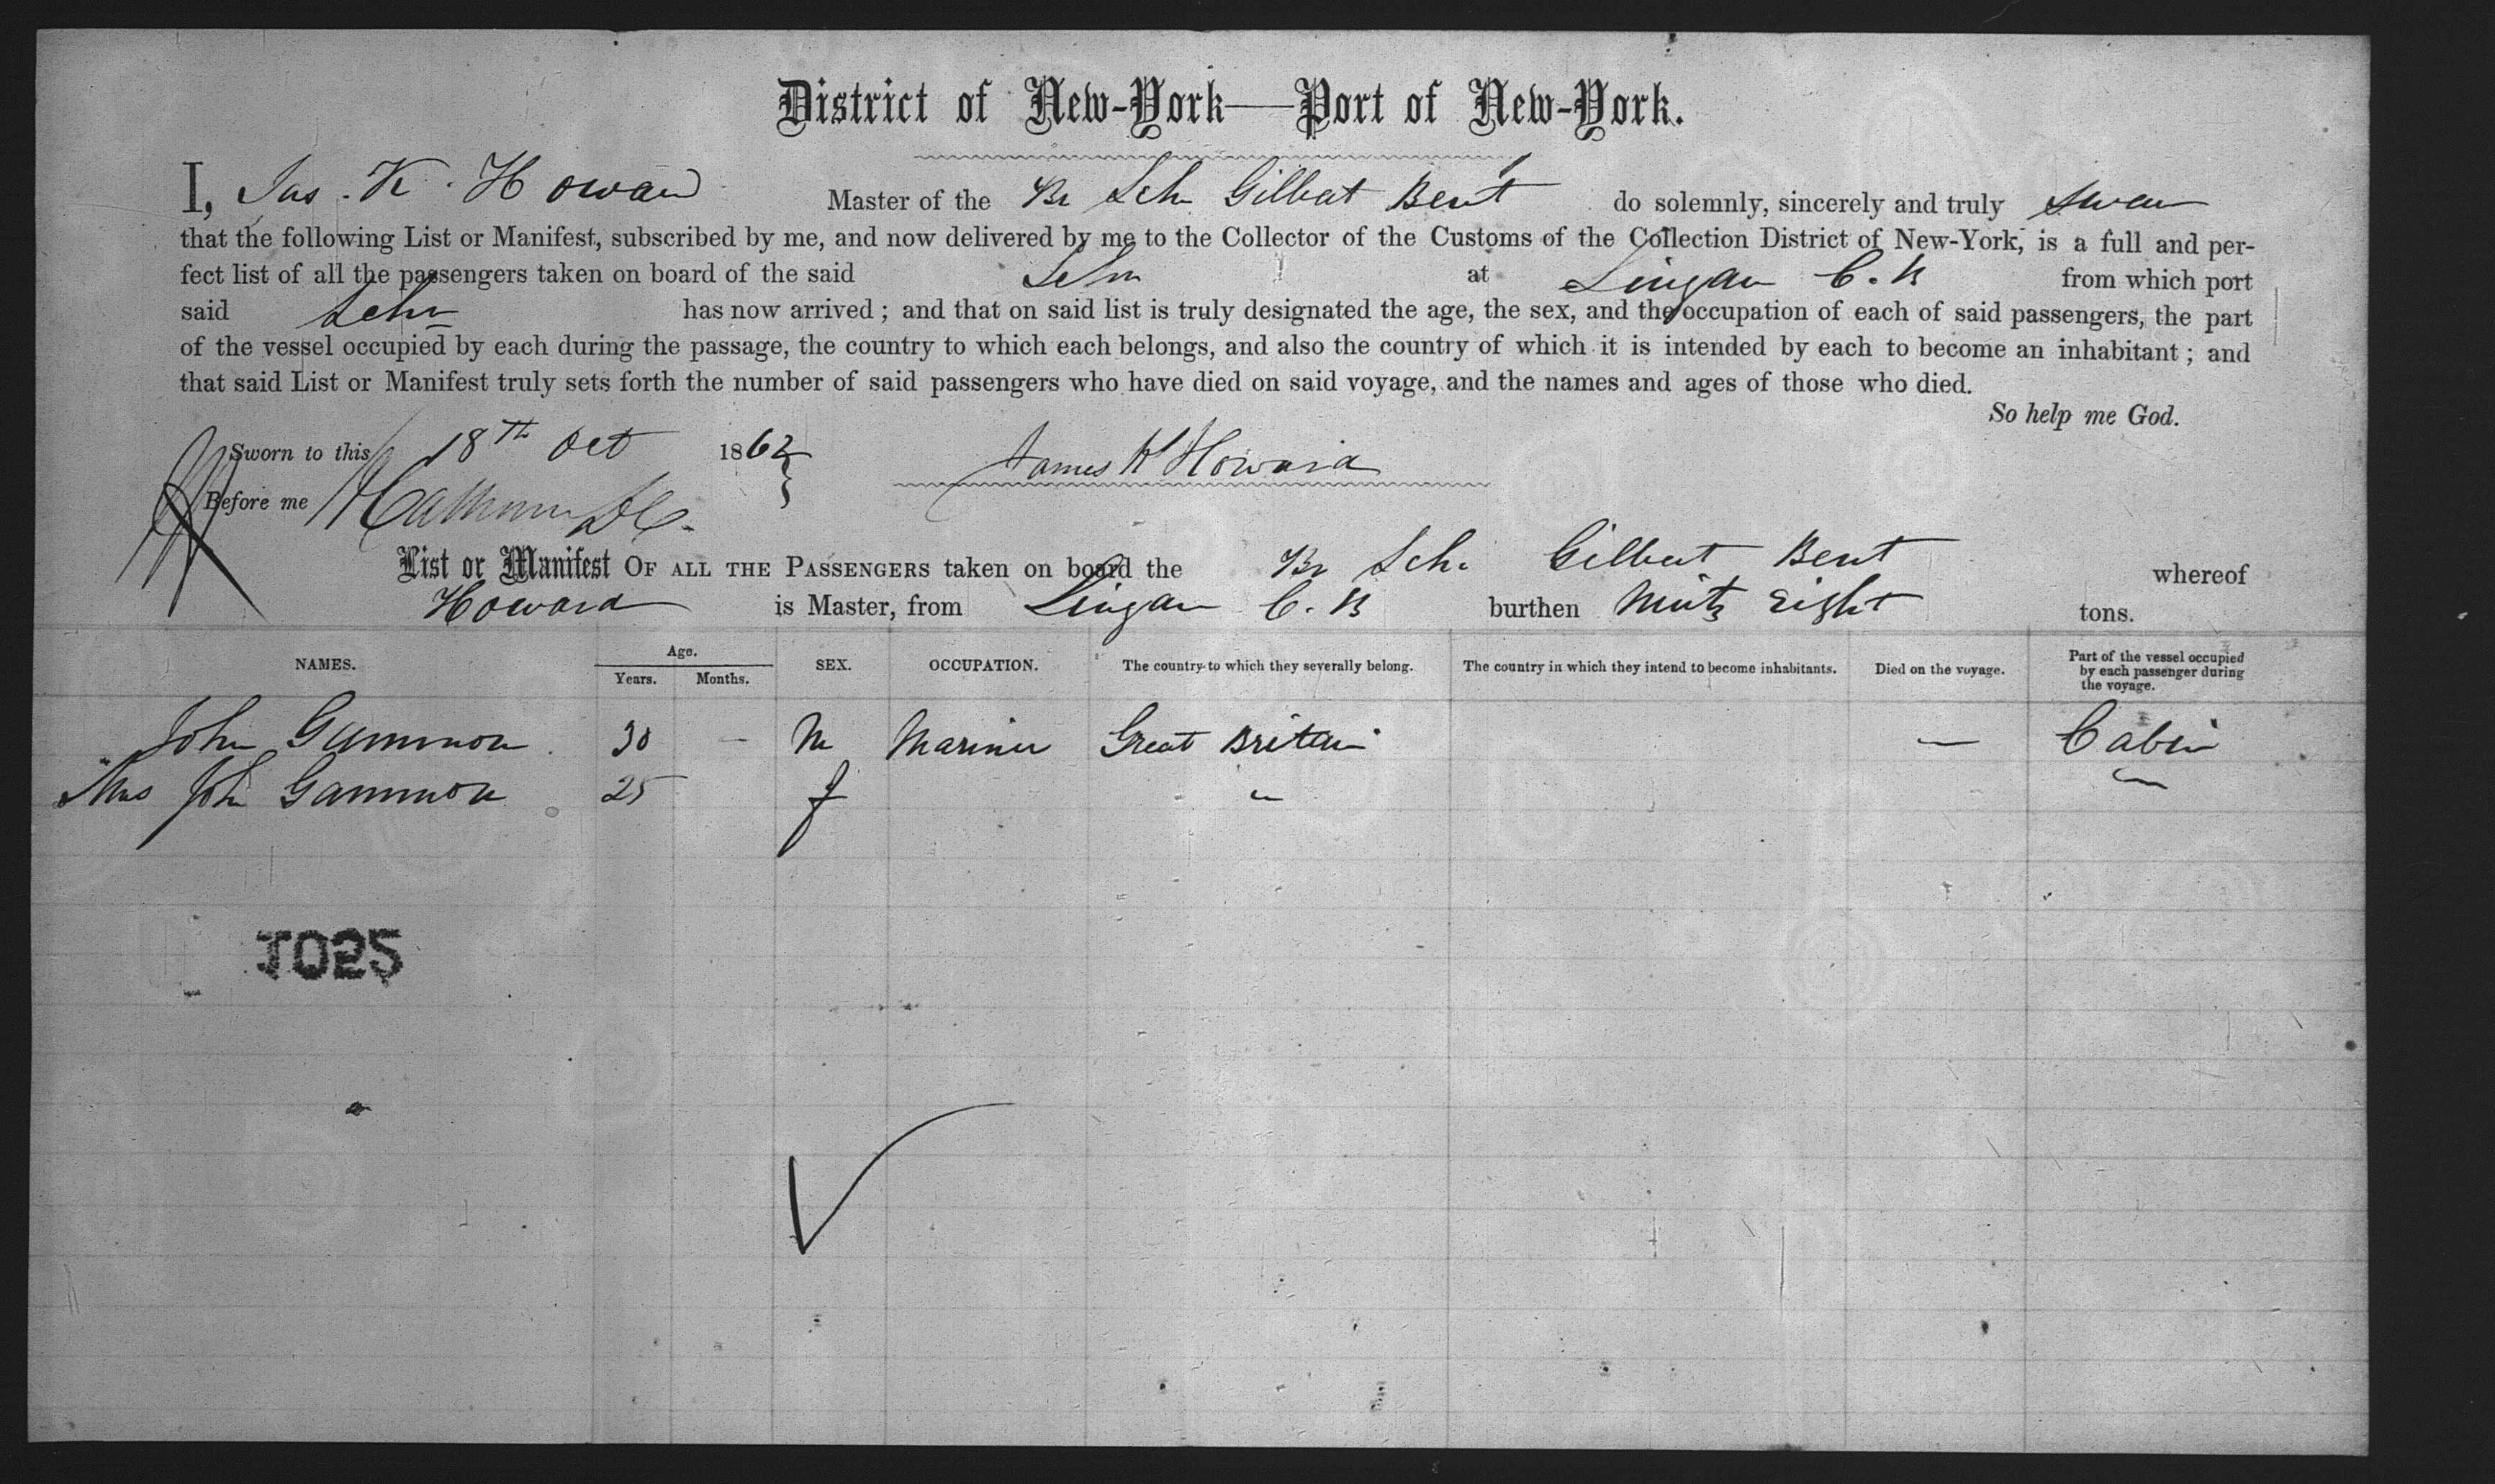 District of New-York—Port of New-York.
I, Jas. K. Howard Master of the Br Sch Gilbert Bent do solemnly, sincerely and truly swear
that the following List or Manifest, subscribed by me, and now delivered by me to the Collector of the Customs of the Collection District of New-York, is a full and per-
fect list of all the passengers taken on board of the said Schr at Lingan C. B from which port
said Schr has now arrived; and that on said list is truly designated the age, the sex, and the occupation of each of said passengers, the part
of the vessel occupied by each during the passage, the country to which each belongs, and also the country of which it is intended by each to become an inhabitant; and
that said List or Manifest truly sets forth the number of said passengers who have died on said voyage, and the names and ages of those who died.
So help me God.
Sworn to this 18th Oct 1862 James K Howard
Before me
List or Manifest OF ALL THE PASSENGERS taken on board the Br Sch. Gilbert Bent whereof
Howard is Master, from Lingan C. B burthen Ninty Eight tons.
NAMES. Age. Years. Months. SEX. OCCUPATION. The country to which they severally belong. The country in which they intend to become inhabitants. Died on the voyage. Part of the vessel occupied by each passenger during the voyage.
John Gammon 30 — M Mariner Great Britain — Cabin
Mrs John Gammon 25 f " "
1025